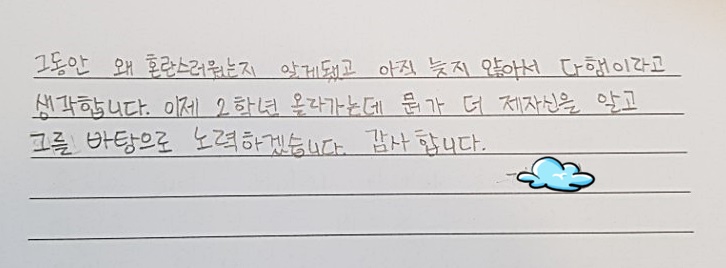 그동안 왜 혼란스러웠는지 알게됐고 아직 늦지 않아서 다행이라고
생각합니다. 이제 2학년 올라가는데 뭔가 더 제자신을 알고
그를 바탕으로 노력하겠습니다. 감사합니다.